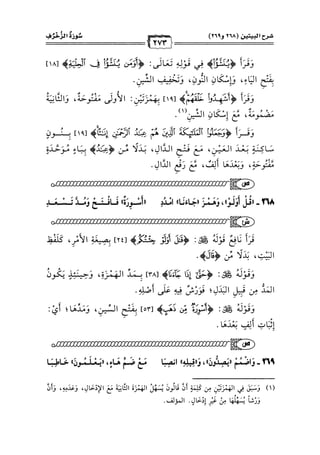 شرح البيتين (٢٦٨ و٢٦٩)
٢٧٣
سُورَةُ الزُّخْرُفِ
وَقَرَأَ ﴿يُنَشَّؤُا﴾ فِي قَوْلِهِ تَعَالَى: ﴿أَوَمَن يُنَشَّؤُا فِى الْحِلْيَةِ﴾ [١٨]
بِفَتْحِ اليَاءِ، وَإِسْكَانِ النُّونِ، وَتَخْفِيفِ الشِّينِ.
وَقَرَأَ ﴿أَشَهِدُوا خَلْقَهُمْ﴾ [١٩] بِهَمْزَتَيْنِ: الأُولَى مَفْتُوحَةٌ، وَالثَّانِيَةُ
مَضْمُومَةٌ، مَعَ إِسْكَانِ الشِّينِ(١).
وَقَرَأَ ﴿وَجَعَلُوا الْمَلَائِكَةَ الَّذِينَ هُمْ عِبَادُ الرَّحْمَٰنِ إِنَاثًا﴾ [١٩] بِنُونٍ
سَاكِنَةٍ بَعْدَ العَيْنِ، مَعَ فَتْحِ الدَّالِ، بَدَلًا مِّنْ ﴿عِبَادُ﴾ بِبَاءٍ مُوَحَّدَةٍ
مَّفْتُوحَةٍ، وَبَعْدَهَا أَلِفٌ، مَعَ رَفْعِ الدَّالِ.
٢٦٨ ـ «قُلْ أَوَلَوْ»، «جَاءَنَا» امْدُدِ وَهَمْزَ، «أَسْوِرَةٌ» فَافْتَحْ وَمُدَّ تَسْعَدِ
قَرَأَ نَافِعٌ قَوْلَهُ: ﴿قُلْ أَوَلَوْ جِئْتُكُم﴾ [٢٤] بِصِيغَةِ الأَمْرِ، كَلَفْظِ
البَيْتِ، بَدَلًا مِّن ﴿قَالَ﴾.
وَقَوْلَهُ: ﴿حَتَّىٰ إِذَا جَاءَنَا﴾ [٣٨] بِمَدِّ الهَمْزَةِ، وَحِينَئِذٍ يَكُونُ
المَدُّ مِن قَبِيلِ البَدَلِ؛ فَوَرْشٌ فِيهِ عَلَى أَصْلِهِ.
وَقَوْلَهُ: ﴿أَسْوِرَةٌ مِّن ذَهَبٍ﴾ [٥٣] بِفَتْحِ السِّينِ، وَمَدِّهَا؛ أَيْ:
إِثْبَاتِ أَلِفٍ بَعْدَهَا.
٢٦٩ ـ وَاضْمُمْ «يَصِدُّونَ»، «وَقِيلِهِ» انصِبَا مَعْ ضَمِّ هَاءٍ، «يَعْلَمُونَ» خَاطِبَا
(١) وَسَبَقَ فِي الهَمْزَتَيْنِ مِن كَلِمَةٍ أَنَّ قَالُونَ يُسَهِّلُ الهَمْزَةَ الثَّانِيَةَ مَعَ الإِدْخَالِ، وَعَدَمِهِ، وَأَنَّ
وَرْشًا يُسَهِّلُهَا مِنْ غَيْرِ إِدْخَالٍ. المؤلف.